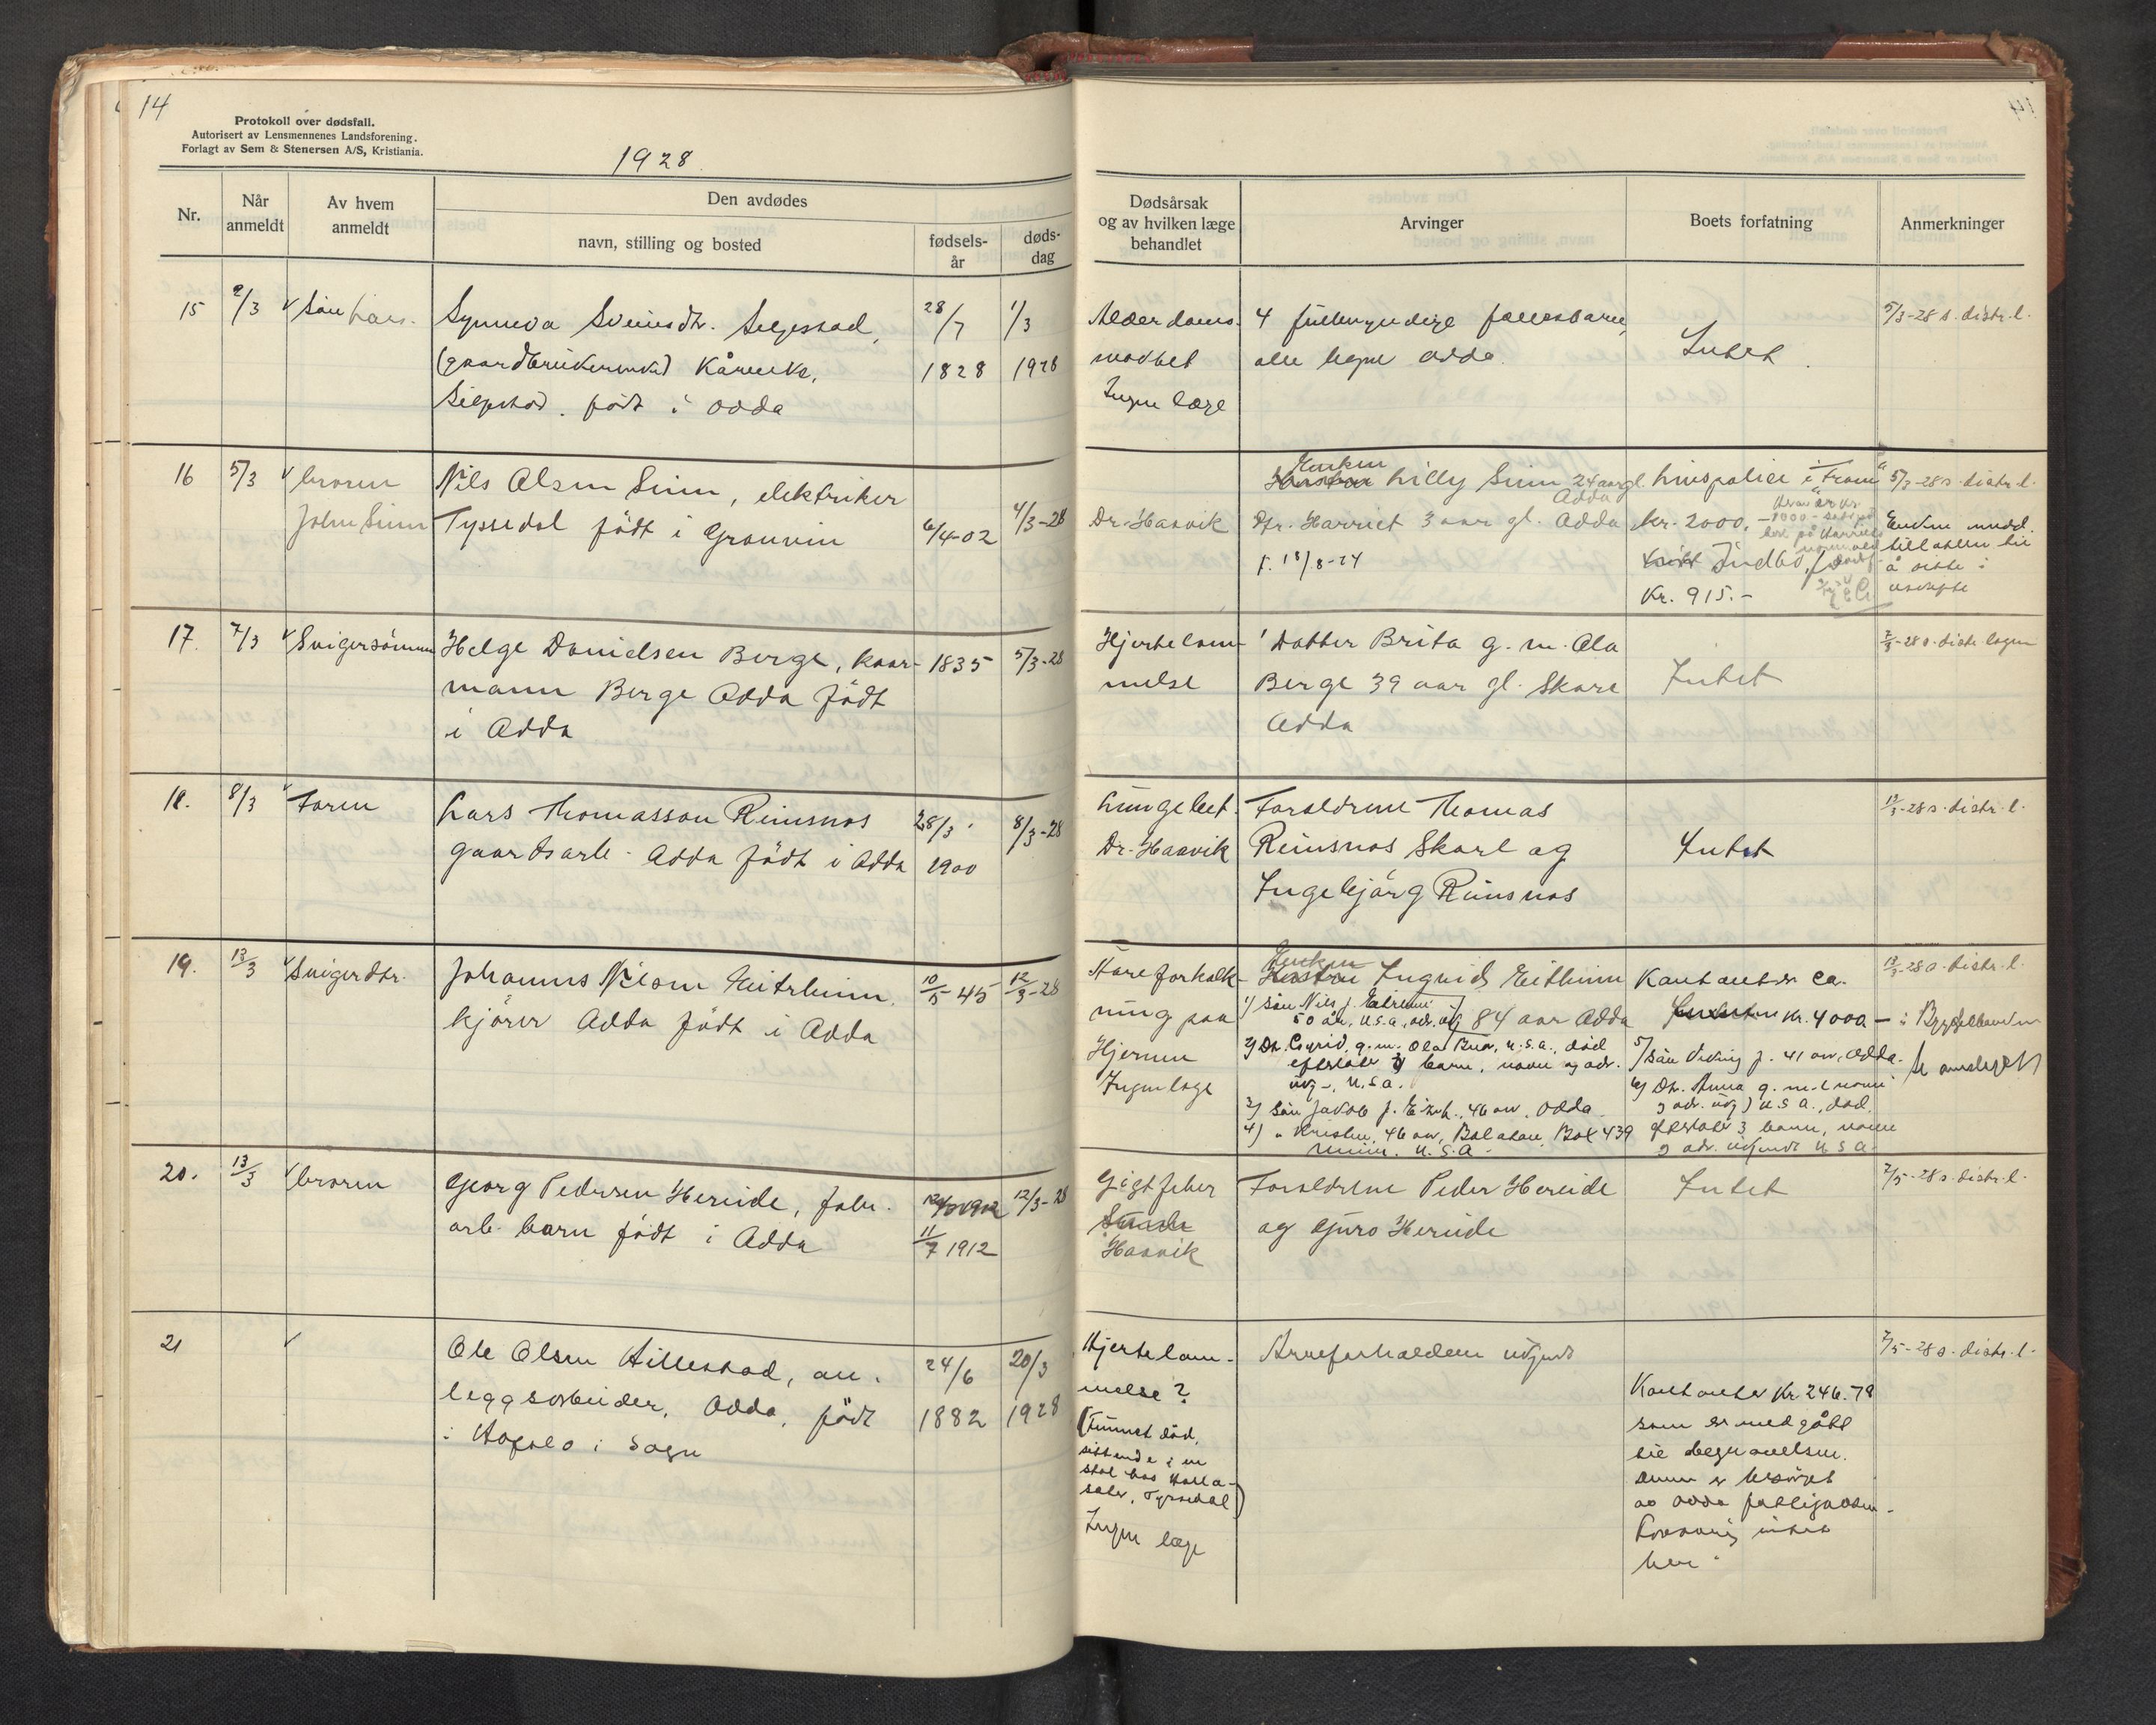 14
Protokoll over dødsfall.
Autorisert av Lensmennenes Landsforening.
Forlagt av Sem & Stenersen A/S, Kristiania.
1928
Nr.
Når
anmeldt
Av hvem
anmeldt
Den avdødes
navn, stilling og bosted
fødsels-
år
døds-
dag
Dødsårsak
og av hvilken læge
behandlet
Arvinger
Boets forfatning
Anmerkninger
15 2/3 Søn Lars. Synneva Sveinsdtr. Seljestad, 28/7 1/3
(gaardbrukerenke) Kårenke, 1828 1928
Seljestad. født i Odda
Alderdoms-
svakhet
Ingen læge
4 fullmyndige fellesbarn,
alle legne Odda.
Intet
5/3-28 s. distr. l.
16 5/3 broren Nils Olsen Sinn, elektriker
John Sinn Tyssedal født i Granvin 6/4-02 4/3-28
Dr. Haavik
Enken
Lilly Sinn 24 aar gl.
Odda
Dtr. Harriet 3 aar gl. Odda
f. 18/8-24
Livspolice i "Fram"
Kr. 2000,-
Indbo,
Kr. 915.-
5/3-28 s. distr. l.
Enken medd.
tillatelse til
å sitte i
uskifte
17. 7/3 Svigersønnen Helge Danielsen Berge, kaar- 1835 5/3-28
mann Berge Odda født
i Odda
Hjertelam-
melse
1 Datter Brita g. m. Ola
Berge 39 aar gl. Skare
Odda
Intet
7/3-28 s. distr. legen
18. 8/3 Faren Lars Thomasson Reinsnos 28/3 8/3-28
gaardsarb. Odda født i Odda 1900
Lungebet.
Dr. Haavik
Foreldrene Thomas
Reinsnos Skare og
Ingebjørg Reinsnos
Intet
19/3-28 s. distr. l.
19. 13/3 Svigerdtr. Johannes Nilsen Eitrheim, 10/5 45 12/3-28
kjører Odda født i Odda
Aareforkalk-
ning paa
Hjernen
Ingen læge
Enken
Hustru Ingrid Eitrheim
84 aar Odda
1) Søn Nils J. Eitrheim
50 år, U.S.A., adr. ukj
2) Dtr. Sigrid, g. m. Ola Buer, U.S.A., død
efterlater barn, navn og adr.
ukj-, U.S.A.
3) Søn Jakob J. Eitrh., 46 aar, Odda
4) " Kristen, 46 aar, Balaton, Box 439
Minn. U.S.A.
Kontanter ca.
kr. 4000 -
5/ Søn Viking J. 41 aar, Odda.
6) Dtr. Anna g. m. (navn
og adr. ukj) U.S.A., død.
efterlater 3 barn, navn
og adr. ukjendt U.S.A.
13/3-28 s. distr. l.
20. 13/3 broren Georg Pedersen Hereide, fabr. 12/3-28
arb. barn født i Odda 11/7 1912
Gigtfeber
Haavik
Foreldrene Peder Hereide
og Guro Hereide
Intet
7/5-28 s. distr. l.
21 Ole Olsen Hillestad, an- 24/6 20/3
leggsarbeider, Odda, født 1882 1928
i Hafslo i Sogn
Hjertelam-
melse?
(Funnet død,
sittende i en
stol hos Holla-
sæter, Tyssedal)
Ingen læge
Arveforholdene ukjendt
Kontanter Kr. 246.78
som er medgått
til begravelsen.
Denne er besørget
av Odda fattigvesen.
Forøvrig intet
her.
7/5-28 s. distr. l.